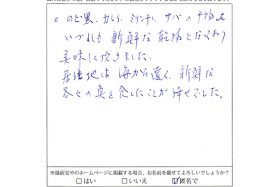 。のど黒、カレイ、ミリン干、サバのすり身と
いづれも新鮮な乾物となっており
美味しく頂きました。
居住地は海から遠く、新鮮な
各々の魚を食したことが幸せでした。
※越前宝やのホームページに掲載する場合、お名前を載せてよろしいでしょうか?
□はい □いいえ ☑匿名で